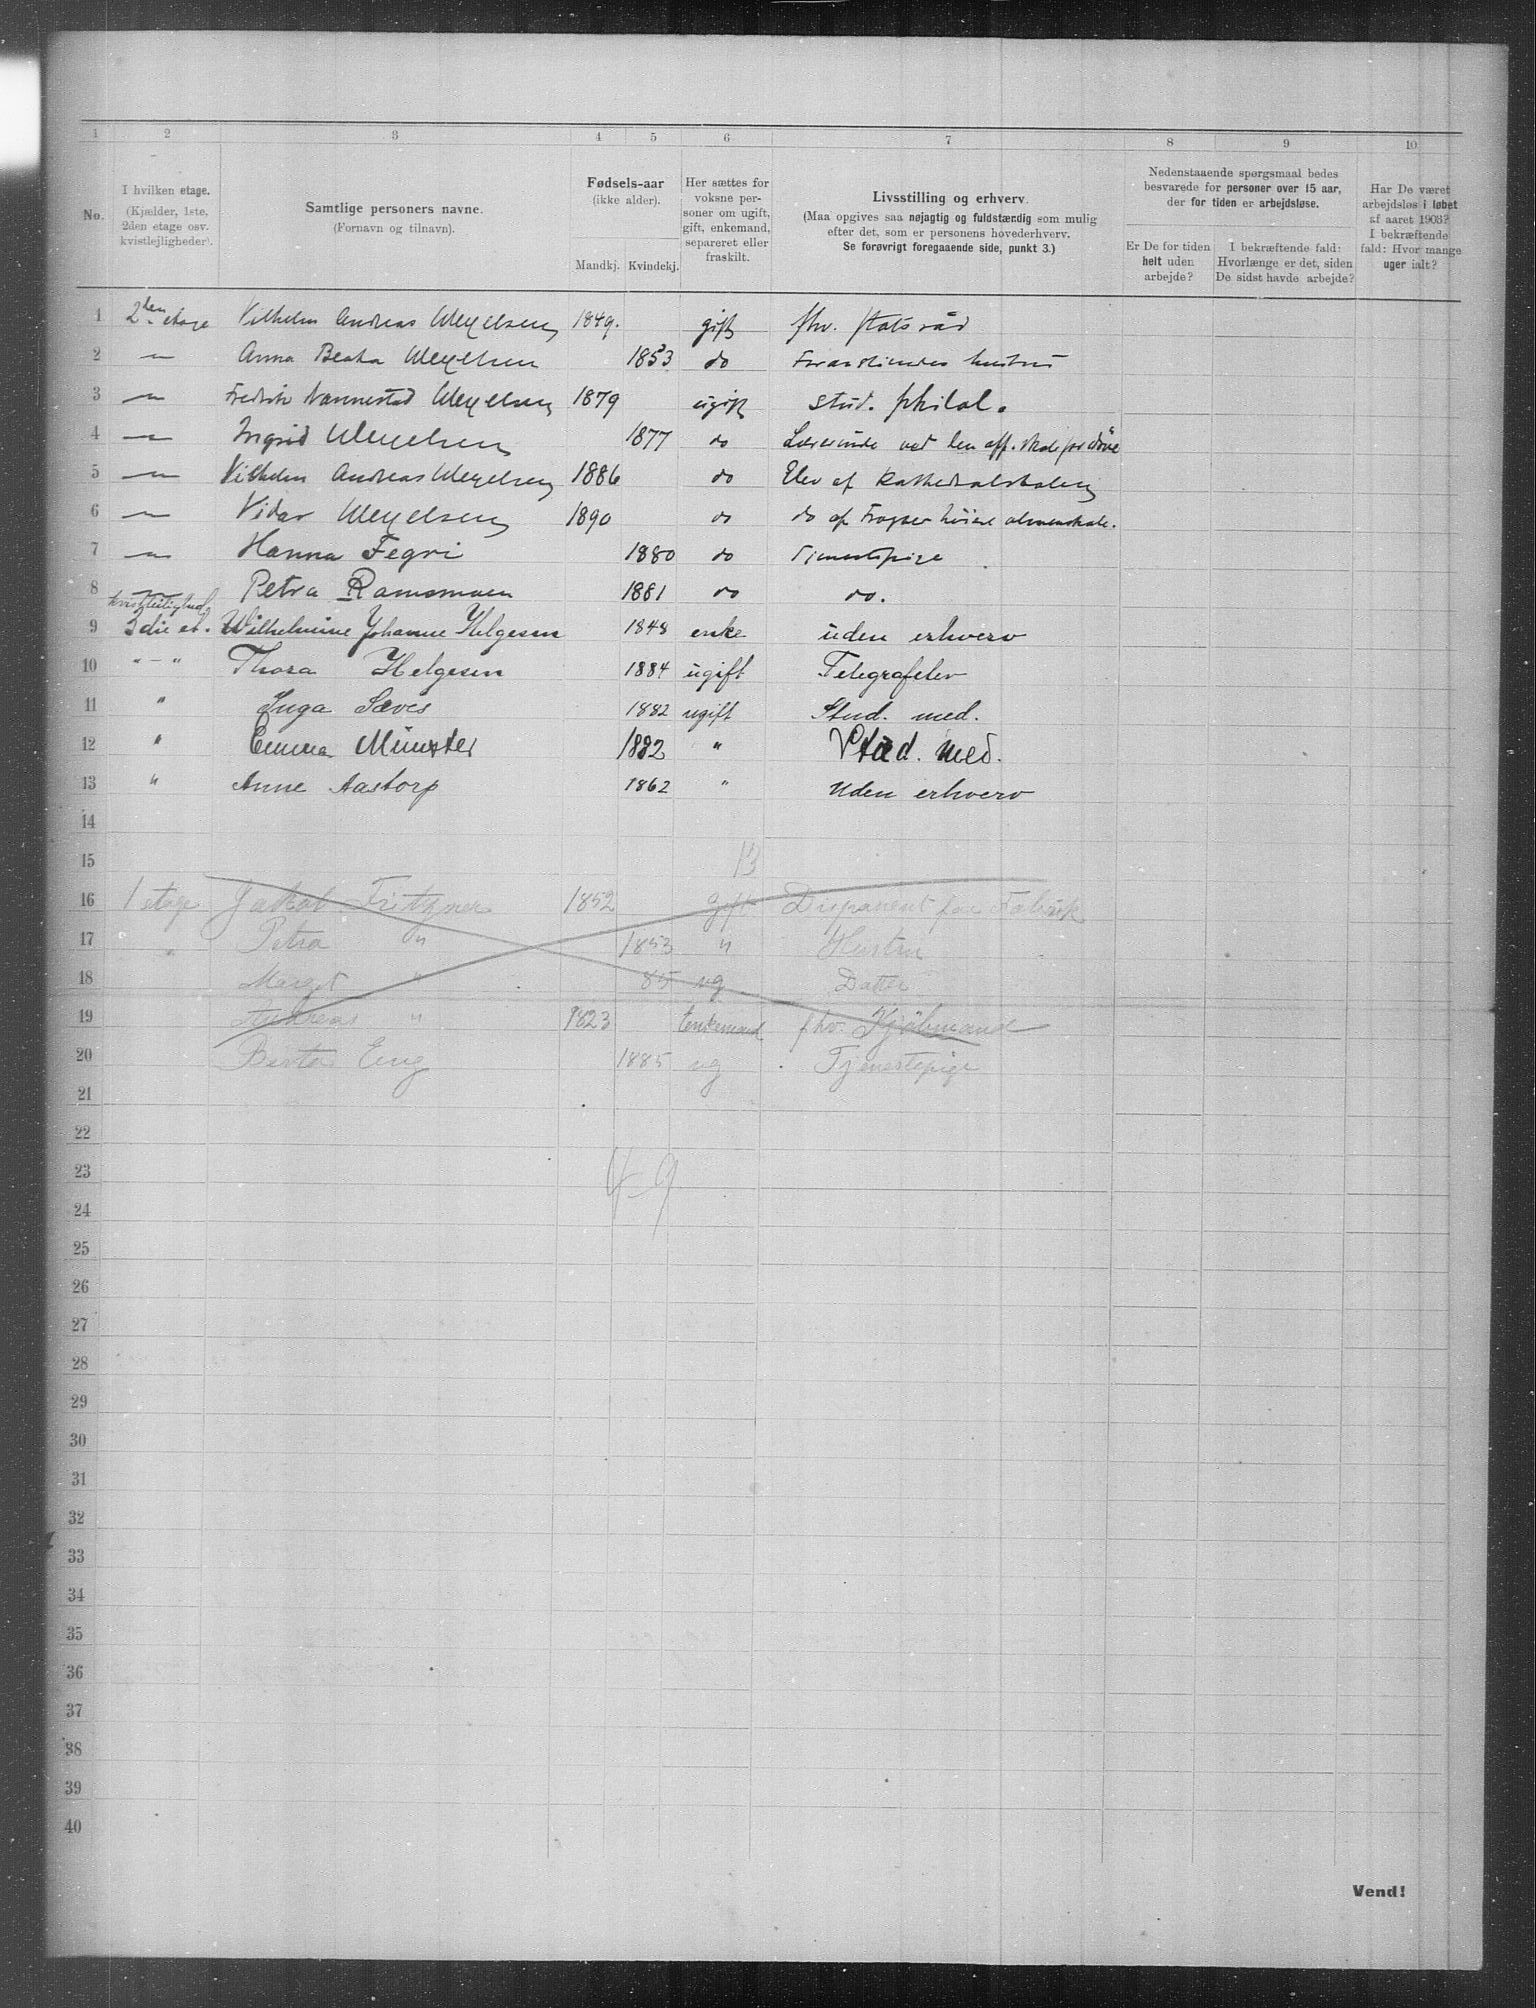 1 2 3 4 5 6 7 8 9 10
No.
I hvilken etage.
(Kjælder, 1ste,
2den etage osv.
kvistlejligheder).
Samtlige personers navne.
(Fornavn og tilnavn).
Fødsels-aar
(ikke alder).
Mandkj. Kvindekj.
Her sættes for
voksne per-
soner om ugift,
gift, enkemand,
separeret eller
fraskilt.
Livsstilling og erhverv.
(Maa opgives saa nøjagtig og fuldstændig som mulig
efter det, som er personens hovederhverv.
Se forøvrigt foregaaende side, punkt 3.)
Nedenstaaende spørgsmaal bedes
besvarede for personer over 15 aar,
der for tiden er arbejdsløse.
Er De for tiden
helt uden
arbejde?
I bekræftende fald:
Hvorlænge er det, siden
De sidst havde arbejde?
Har De været
arbejdsløs i løbet
af aaret 1903?
I bekræftende
fald: Hvor mange
uger ialt?
1 2den etage Vilhelm Andreas Wexelsen 1849. gift fhv. statsråd
2 — Anna Beata Wexelsen 1853 do Foranstående hustru
3 — Fredrik Nannestad Wexelsen 1879 ugift stud. philol.
4 — Ingrid Wexelsen 1877 do Lærerinde ved den off. skole for døve
5 — Vilhelm Andreas Wexelsen 1886 do Elev af Kathedralskolen
6 — Vidar Wexelsen 1890 do do af Frogner høiere almenskole.
7 — Hanna Fegri 1880 do Tjenestepige
8 — Petra Ramsmoen 1881 do do.
kvistleilighed
9 3die et. Wilhelmine Johanne Helgesen 1848 enke uden erhverv
10 " — " Thora Helgesen 1884 ugift Telegrafelev
11 " Inga Sæves 1882 ugift Stud. med.
12 " Emma Münster 1882 " Stud. med.
13 " Anne Aastorp 1862 " Uden erhverv
14
15 13
16 1 etage Jakob Fritzner 1852 gift Disponent for Fabrik
17 " Petra " 1853 " Hustru
18 Marget " 85 ug Datter
19 Andreas " 1823 Enkemand fhv. Kjøbmand
20 Berta Eng 1885 ug Tjenestepige
21
22
23 4 9
24
25
26
27
28
29
30
31
32
33
34
35
36
37
38
39
40
Vend!